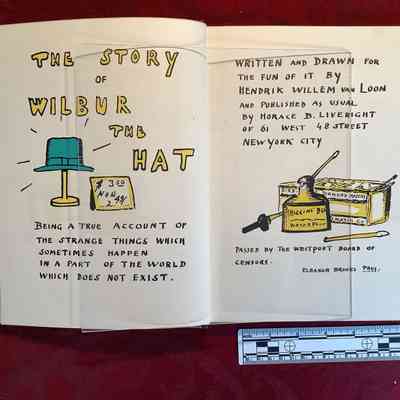 THE STORY
OF
WILBUR
THE
HAT
$3.00
NOW
2.48
BEING A TRUE ACCOUNT OF
THE STRANGE THINGS WHICH
SOMETIMES HAPPEN
IN A PART OF THE WORLD
WHICH DOES NOT EXIST.
WRITTEN AND DRAWN FOR
THE FUN OF IT BY
HENDRIK WILLEM VAN LOON
AND PUBLISHED AS USUAL
BY HORACE B. LIVERIGHT
OF 61 WEST 48 STREET
NEW YORK CITY
HIGGINS
MATCH CO
PASSED BY THE WESTPORT BOARD OF
CENSORS.
ELEANOR BROOKS PRES.